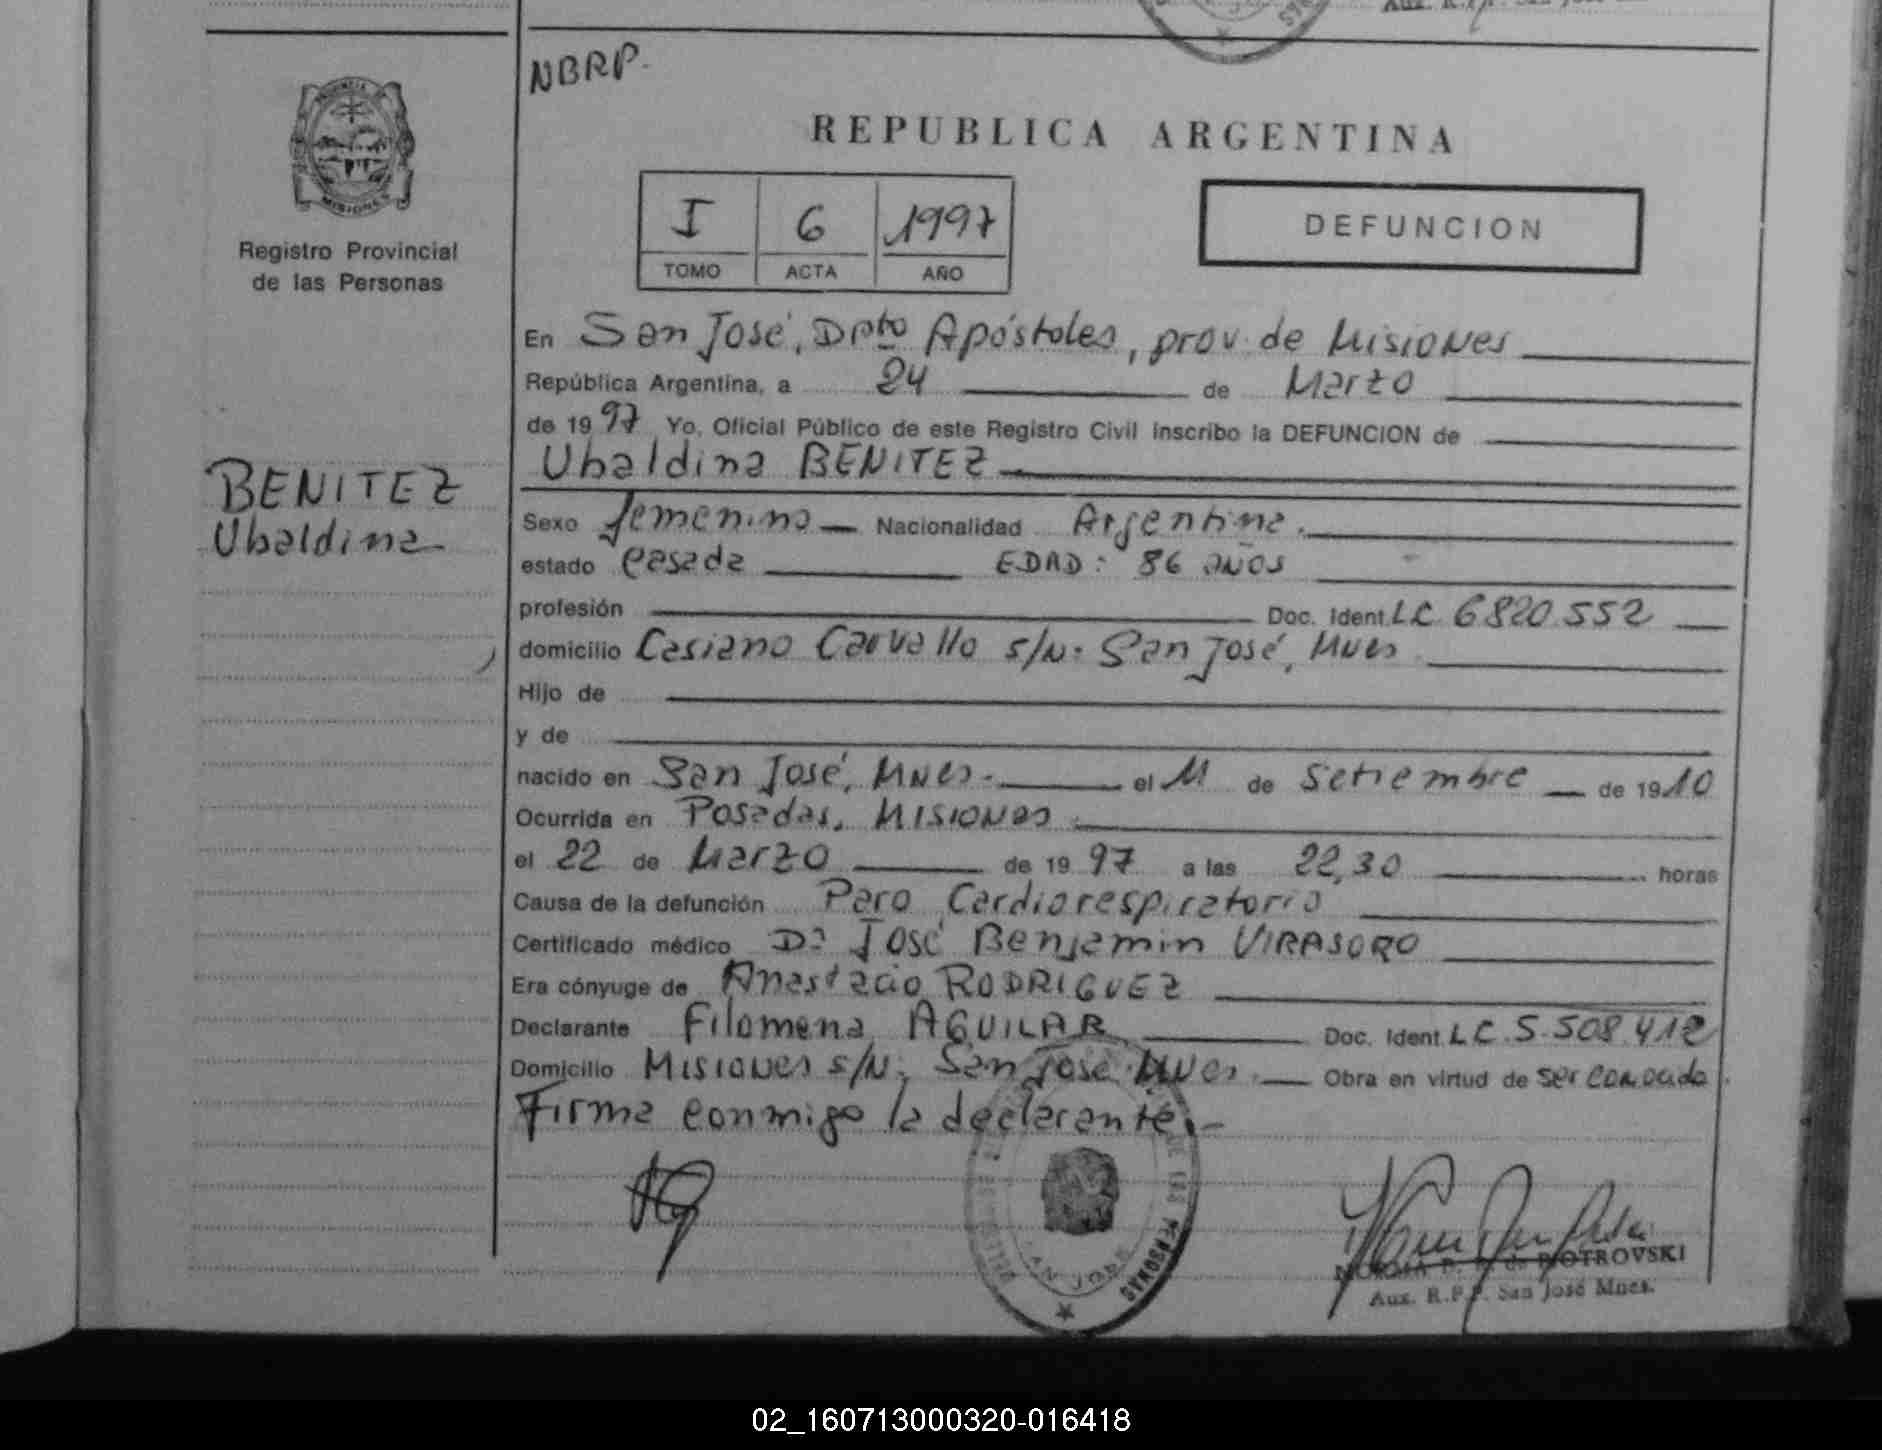 NBRP.
PROVINCIA DE
MISIONES
Registro Provincial
de las Personas
REPUBLICA ARGENTINA
I 6 1997
TOMO ACTA AÑO
DEFUNCION
BENITEZ
Ubaldina
En San José, Dpto Apóstoles, prov. de Misiones
República Argentina, a 24 de Marzo
de 1997 Yo, Oficial Público de este Registro Civil inscribo la DEFUNCION de
Ubaldina BENITEZ
Sexo femenino Nacionalidad Argentina.
estado casada EDAD: 86 años
profesión Doc. Ident. LC. 6820.552
domicilio Casiano Carvallo s/N: San José, Mnes
Hijo de
y de
nacido en San José, Mnes. el 11 de Setiembre de 1910
Ocurrida en Posadas, Misiones
el 22 de Marzo de 1997 a las 22,30 horas
Causa de la defunción Paro Cardiorespiratorio
Certificado médico Dr José Benjamin VIRASORO
Era cónyuge de Anastacio RODRIGUEZ
Declarante Filomena AGUILAR Doc. Ident. LC. 5.508.412
Domicilio Misiones s/N. San José Mnes. Obra en virtud de ser conocida.
Firma conmigo la declarante.-
DE LAS PERSONAS
SAN JOSE
NORMA B. de PIOTROVSKI
Aux. R.P.P. San José Mnes.
02_160713000320-016418